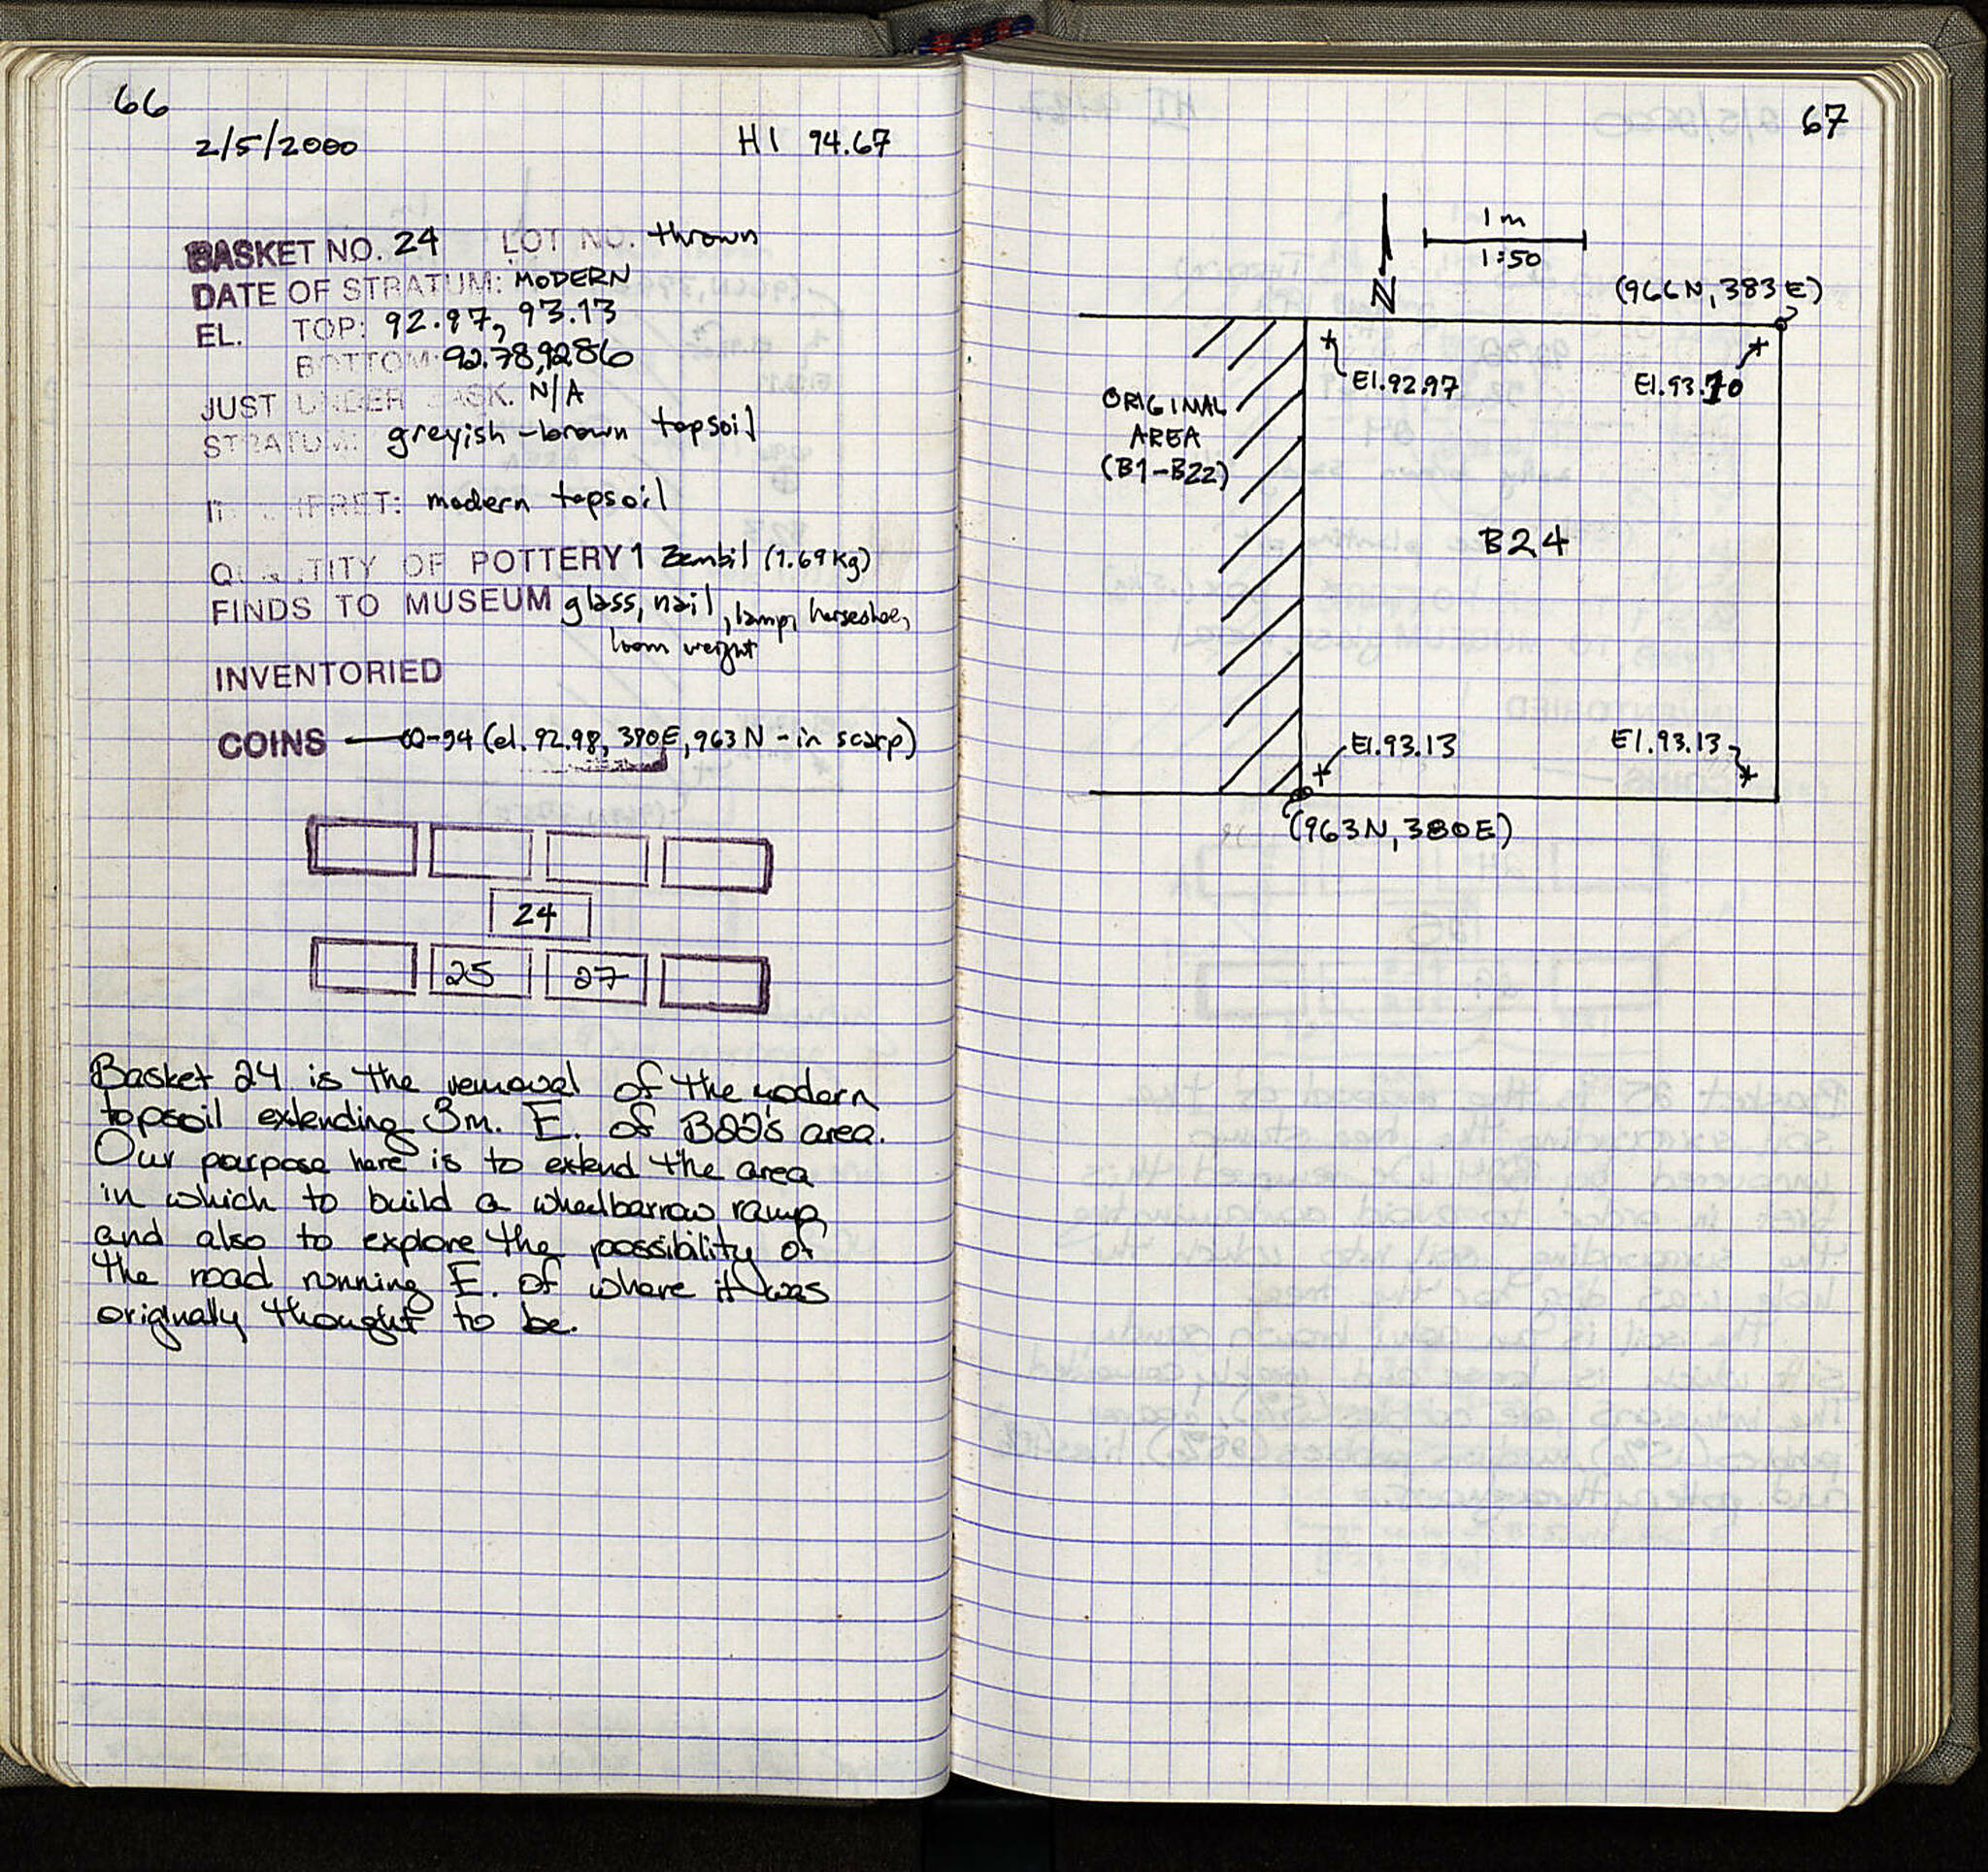 66
2/5/2000 HI 94.67
BASKET NO. 24 LOT NO. thrown
DATE OF STRATUM: MODERN
EL. TOP: 92.97, 93.13
BOTTOM: 92.78, 92.86
JUST UNDER BASK. N/A
STRATUM: greyish-brown topsoil
INTERPRET: modern topsoil
QUANTITY OF POTTERY 1 Zembil (1.69 Kg)
FINDS TO MUSEUM glass, nail, lamp, horseshoe,
loom weight
INVENTORIED
COINS 00-94 (el. 92.98, 390E, 963N - in scarp)
24
25 27
Basket 24 is the removal of the modern
topsoil extending 3m. E. of B22's area.
Our purpose here is to extend the area
in which to build a wheelbarrow ramp,
and also to explore the possibility of
the road running E. of where it was
originally thought to be.
67
1 m
1:50
N
(966N, 383E)
El. 92.97
El. 93.10
ORIGINAL
AREA
(B1-B22)
B24
El. 93.13
El. 93.13
(963N, 380E)